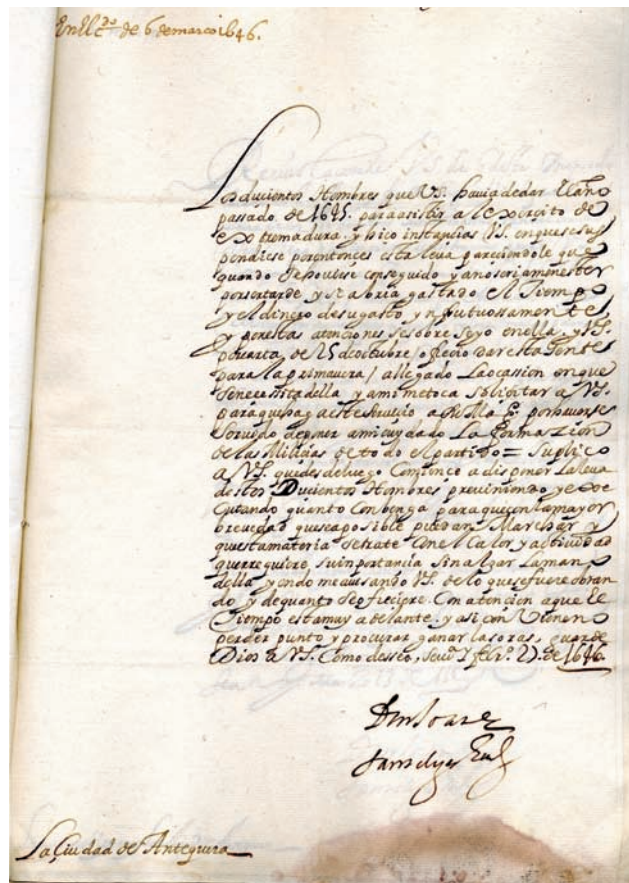 En el c.do de 6 de março 1646.
Los ducientos Hombres que VS. havia de dar el año
passado de 1645. para asistir al exercito de
extremadura. y hiço instancias VS. en que se sus
pendiese por entonces esta leva pareciendole que
quando se huviese conseguido ya no seria menester
por ser tarde, y se abria gastado el Tiempo
y el dinero de su gasto, ynfrutuossamente,
y por estas atenciones se sobre seyo en ella. y VS.
por carta, de 25 de octubre / ofrecio dar esta Gente
para la primavera / a llegado La ocassion en que
se necessita della, y a mi me toca soliçitar a VS.
para que haga este servicio a su Mag.d por haverse
servido de poner a mi cuydado La formazion
de las Milicias de todo el partido = Suplico
a VS. que desde luego Comience a disponer La leva
destos Ducientos Hombres previniendo y exe
cutando quanto Conbenga para que con la mayor
brevedad que sea posible puedan Marchar y
que esta materia se trate Con el Calor y actividad
que rrequiere, su inportancia sin alzar La mano
della yendome avissando VS. de lo que se fuere obran
do y de quanto se ofreciere. Con atencion a que El
Tiempo esta muy adelante, y assi conviene no
perder punto y procurar ganar las oras, guarde
Dios a VS. Como desseo, Sev.a y febr.o 27. de 1646.
Don Juan
La Ciudad de Antequera